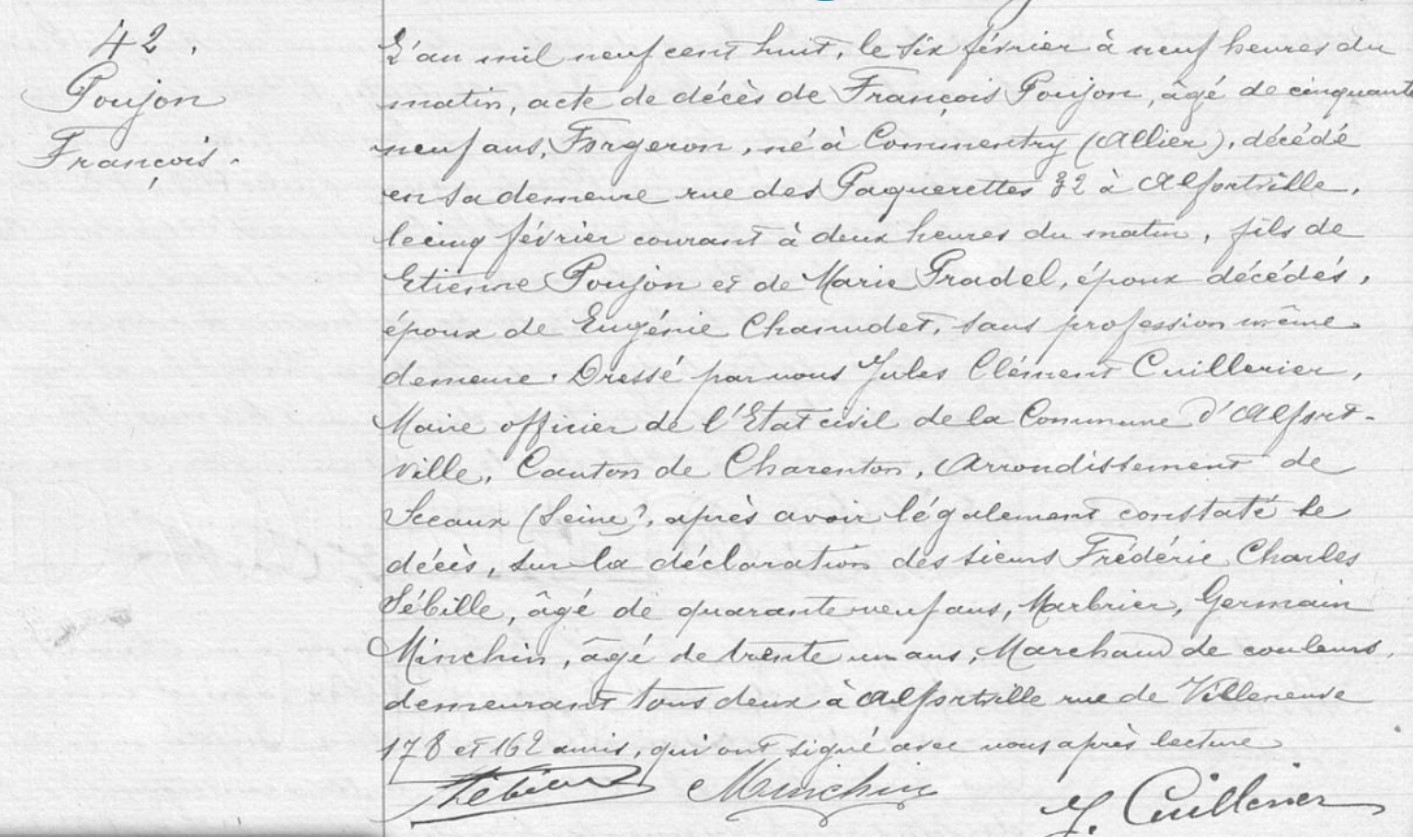 42.
Poujon
François.
L'an mil neuf cent huit, le six février à neuf heures du
matin, acte de décès de François Poujon, âgé de cinquante
neuf ans, Forgeron, né à Commentry (Allier), décédé
en sa demeure rue des Paquerettes 32 à Alfortville,
le cinq février courant à deux heures du matin, fils de
Etienne Poujon et de Marie Pradel, époux décédés,
époux de Eugénie Chanudet, sans profession même
demeure. Dressé par nous Jules Clément Cuillerier,
Maire officier de l'Etat civil de la Commune d'Alfort-
ville, Canton de Charenton, Arrondissement de
Sceaux (Seine), après avoir légalement constaté le
décès, sur la déclaration des sieurs Frédéric Charles
Sébille, âgé de quarante neuf ans, Marbrier, Germain
Minchin, âgé de trente un ans, Marchand de couleurs,
demeurant tous deux à Alfortville rue de Villeneuve
178 et 162 amis, qui ont signé avec nous après lecture
Sébille Minchin J. Cuillerier